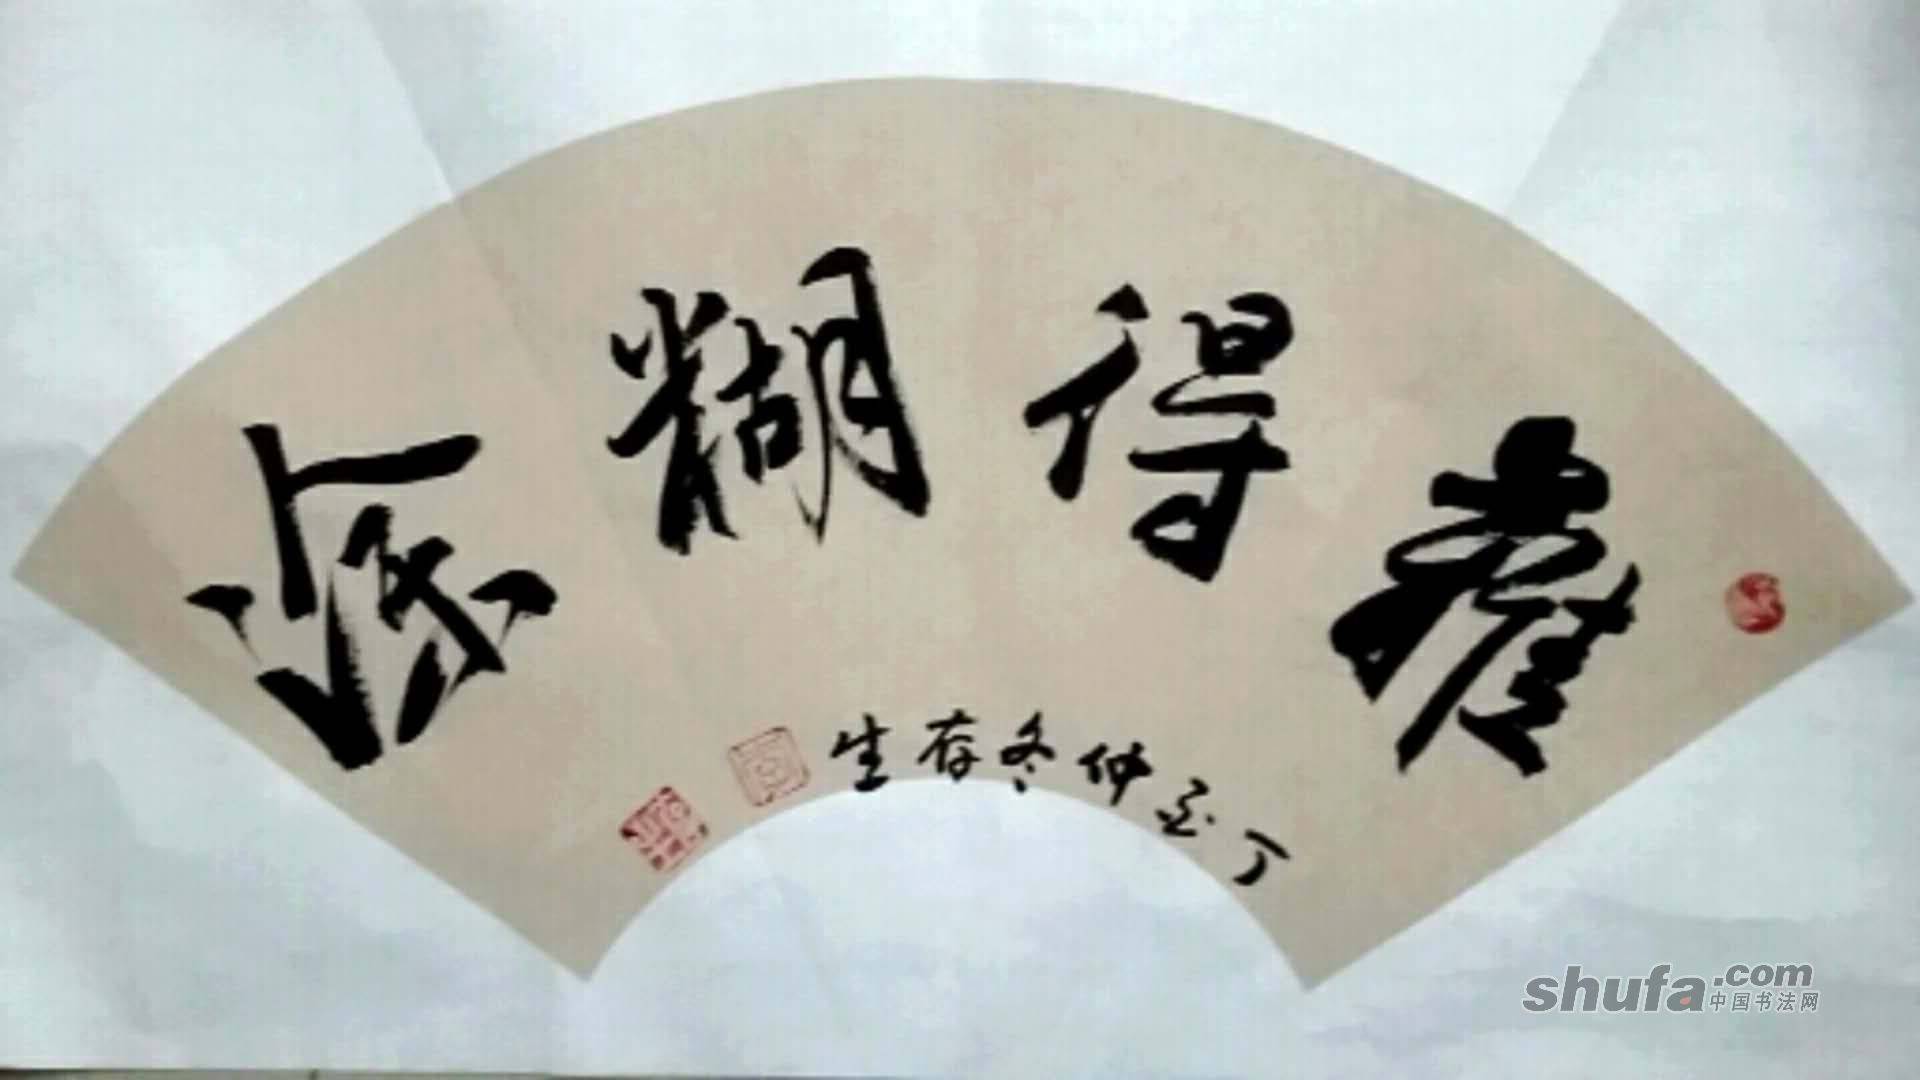 難得糊涂
丁亥仲冬存生
shufa.com
中国书法网